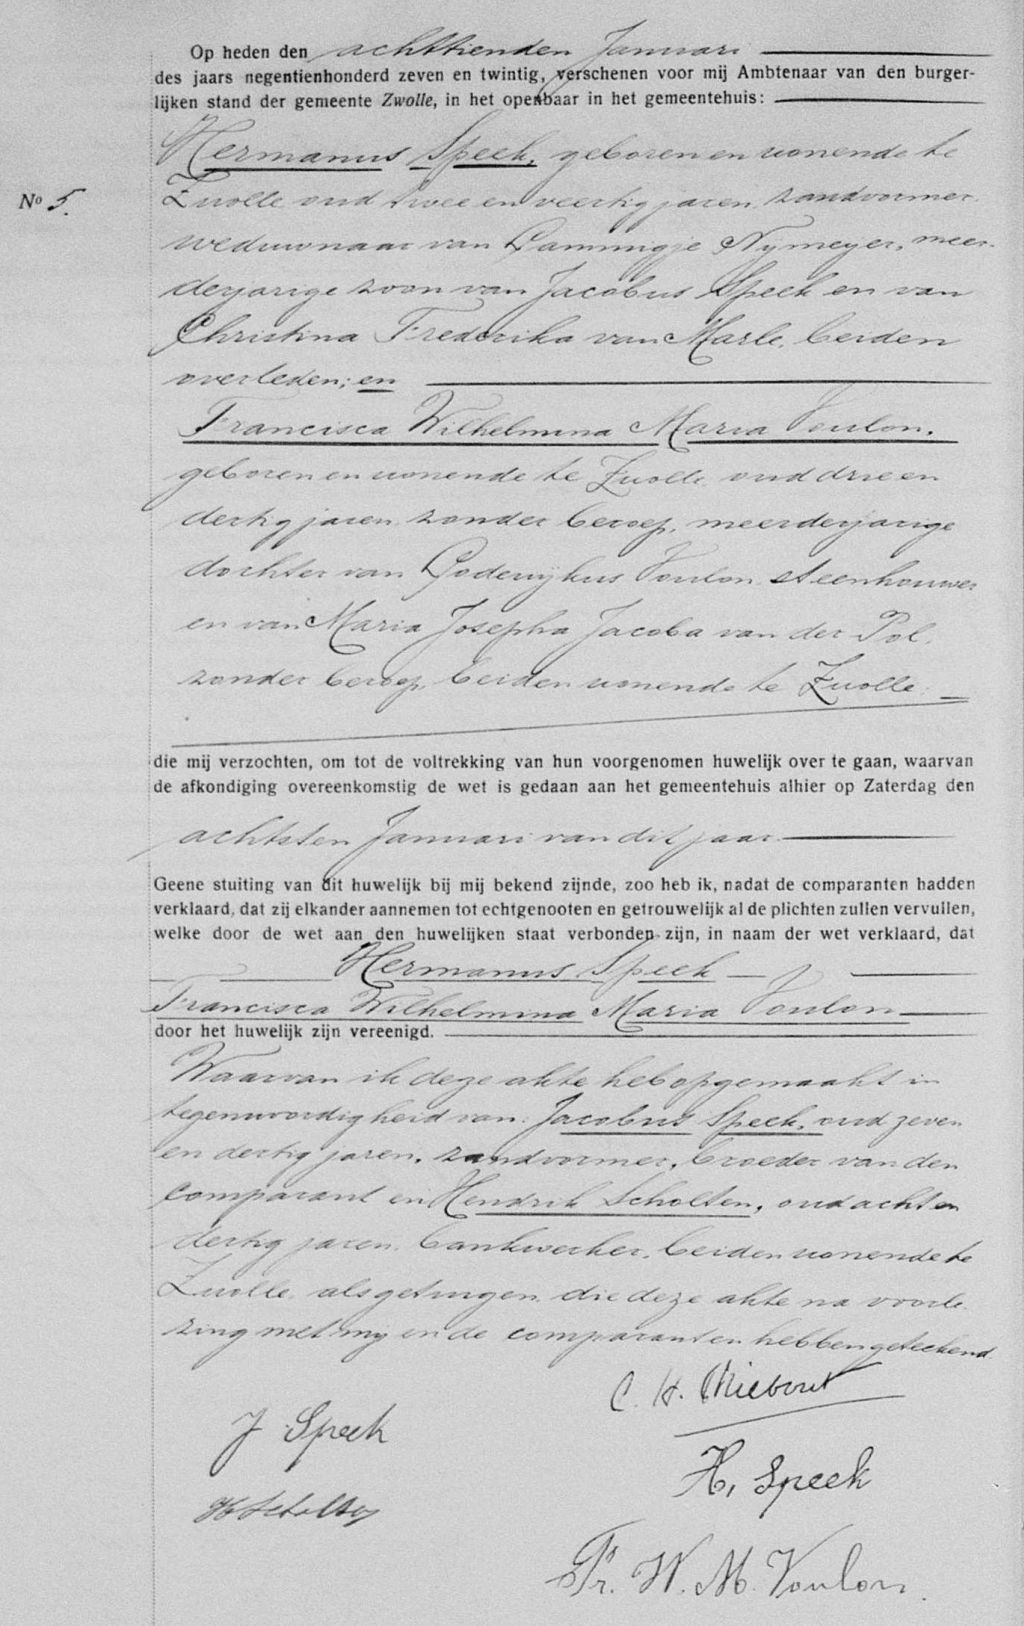 Op heden den achttienden Januari
des jaars negentienhonderd zeven en twintig, verschenen voor mij Ambtenaar van den burger-
lijken stand der gemeente Zwolle, in het openbaar in het gemeentehuis:
Hermanus Speek, geboren en wonende te
No 5.
Zwolle oud twee en veertig jaren, zandvormer
weduwnaar van Lammigje Nijmeyer, meer-
derjarige zoon van Jacobus Speek en van
Christina Frederika van Marle, beiden
overleden; en
Francisca Wilhelmina Maria Voulon,
geboren en wonende te Zwolle, oud drie en
dertig jaren, zonder beroep, meerderjarige
dochter van Godewijkus Voulon, steenhouwer
en van Maria Josepha Jacoba van der Pol,
zonder beroep, beiden wonende te Zwolle.
die mij verzochten, om tot de voltrekking van hun voorgenomen huwelijk over te gaan, waarvan
de afkondiging overeenkomstig de wet is gedaan aan het gemeentehuis alhier op Zaterdag den
achtsten Januari van dit jaar
Geene stuiting van dit huwelijk bij mij bekend zijnde, zoo heb ik, nadat de comparanten hadden
verklaard, dat zij elkander aannemen tot echtgenooten en getrouwelijk al de plichten zullen vervullen,
welke door de wet aan den huwelijken staat verbonden zijn, in naam der wet verklaard, dat
Hermanus Speek
Francisca Wilhelmina Maria Voulon
door het huwelijk zijn vereenigd.
Waarvan ik deze akte heb opgemaakt in
tegenwoordigheid van: Jacobus Speek, oud zeven
en dertig jaren, zandvormer, broeder van den
comparant en Hendrik Scholten, oud acht en
dertig jaren, bankwerker, beiden wonende te
Zwolle, als getuigen, die deze akte na voorle-
zing met mij en de comparanten hebben geteekend
C. H. Thiebout
J Speek
H, Speek
H Scholten
Fr. W. M. Voulon.